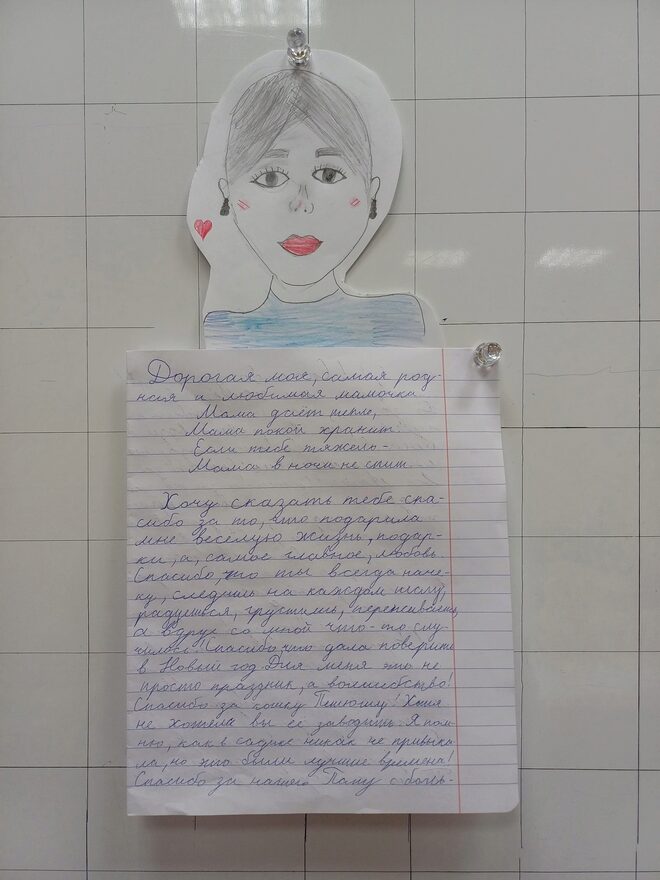 Дорогая моя, самая род-
ная и любимая мамочка
Мама даёт тепло,
Мама покой хранит.
Если тебе тяжело -
Мама в ночи не спит.
Хочу сказать тебе спа-
сибо за то, что подарила
мне веселую жизнь, подар-
ки, а, самое главное, любовь.
Спасибо, что ты всегда
ку, следишь на каждом шагу,
радуешься, грустишь, переживаешь,
а вдруг со мной что-то слу-
чилось! Спасибо, что дала поверить
в Новый год. Для меня это не
просто праздник, а волшебство!
Спасибо за кошку Тишошу! Хотя
не хотели вы её заводить. Я пом-
ню, как в садике никак не привыка-
ла, но это были лучшие времена!
Спасибо за нашего Папу с боль-